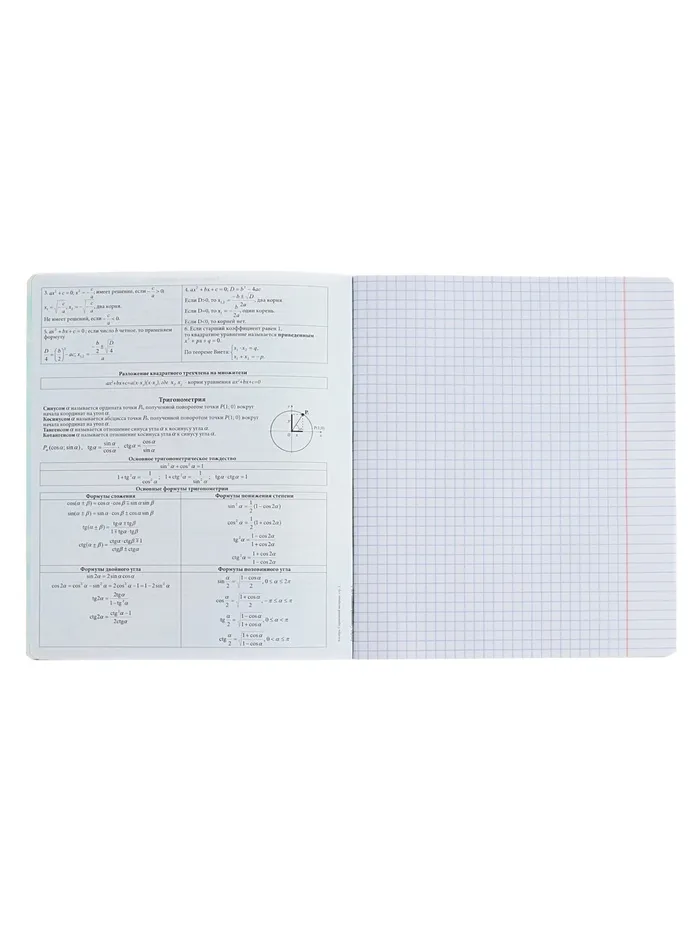 3. ax² + c = 0; x² = -c/a, имеет решение, если -c/a > 0:
x₁ = √(-c/a); x₂ = -√(-c/a), два корня.
Не имеет решений, если -c/a < 0.
4. ax² + bx + c = 0; D = b² - 4ac
Если D>0, то x₁,₂ = (-b ± √D)/2a, два корня.
Если D=0, то x = -b/2a, один корень.
Если D<0, то корней нет.
5. ax² + bx + c = 0; если число b четное, то применяем
формулу
D/4 = (b/2)² - ac; x₁,₂ = (-b/2 ± √(D/4))/a
6. Если старший коэффициент равен 1,
то квадратное уравнение называется приведенным
x² + px + q = 0.
По теореме Виета: { x₁ · x₂ = q,
x₁ + x₂ = -p.
Разложение квадратного трехчлена на множители
ax²+bx+c=a(x-x₁)(x-x₂), где x₁, x₂ - корни уравнения ax²+bx+c=0
Тригонометрия
Синусом α называется ордината точки Pα, полученной поворотом точки P(1; 0) вокруг
начала координат на угол α.
Косинусом α называется абсцисса точки Pα, полученной поворотом точки P(1; 0) вокруг
начала координат на угол α.
Тангенсом α называется отношение синуса угла α к косинусу угла α.
Котангенсом α называется отношение косинуса угла α к синусу угла α.
Pα (cosα; sinα), tgα = sinα/cosα, ctgα = cosα/sinα
P(1;0)
0
Основное тригонометрическое тождество
sin²α + cos²α = 1
1 + tg²α = 1/cos²α; 1 + ctg²α = 1/sin²α; tgα · ctgα = 1
Основные формулы тригонометрии
Формулы сложения
cos(α ± β) = cosα · cosβ ∓ sinα sinβ
sin(α ± β) = sinα · cosβ ± cosα sinβ
tg(α ± β) = (tgα ± tgβ)/(1 ∓ tgα · tgβ)
ctg(α ± β) = (ctgα · ctgβ ∓ 1)/(ctgβ ± ctgα)
Формулы понижения степени
sin²α = 1/2 (1 - cos2α)
cos²α = 1/2 (1 + cos2α)
tg²α = (1 - cos2α)/(1 + cos2α)
ctg²α = (1 + cos2α)/(1 - cos2α)
Формулы двойного угла
sin2α = 2sinα cosα
cos2α = cos²α - sin²α = 2cos²α - 1 = 1 - 2sin²α
tg2α = 2tgα/(1 - tg²α)
ctg2α = (ctg²α - 1)/2ctgα
Формулы половинного угла
sin α/2 = √((1 - cosα)/2), 0 ≤ α ≤ 2π
cos α/2 = √((1 + cosα)/2), -π ≤ α ≤ π
tg α/2 = √((1 - cosα)/(1 + cosα)), 0 ≤ α < π
ctg α/2 = √((1 + cosα)/(1 - cosα)), 0 < α ≤ π